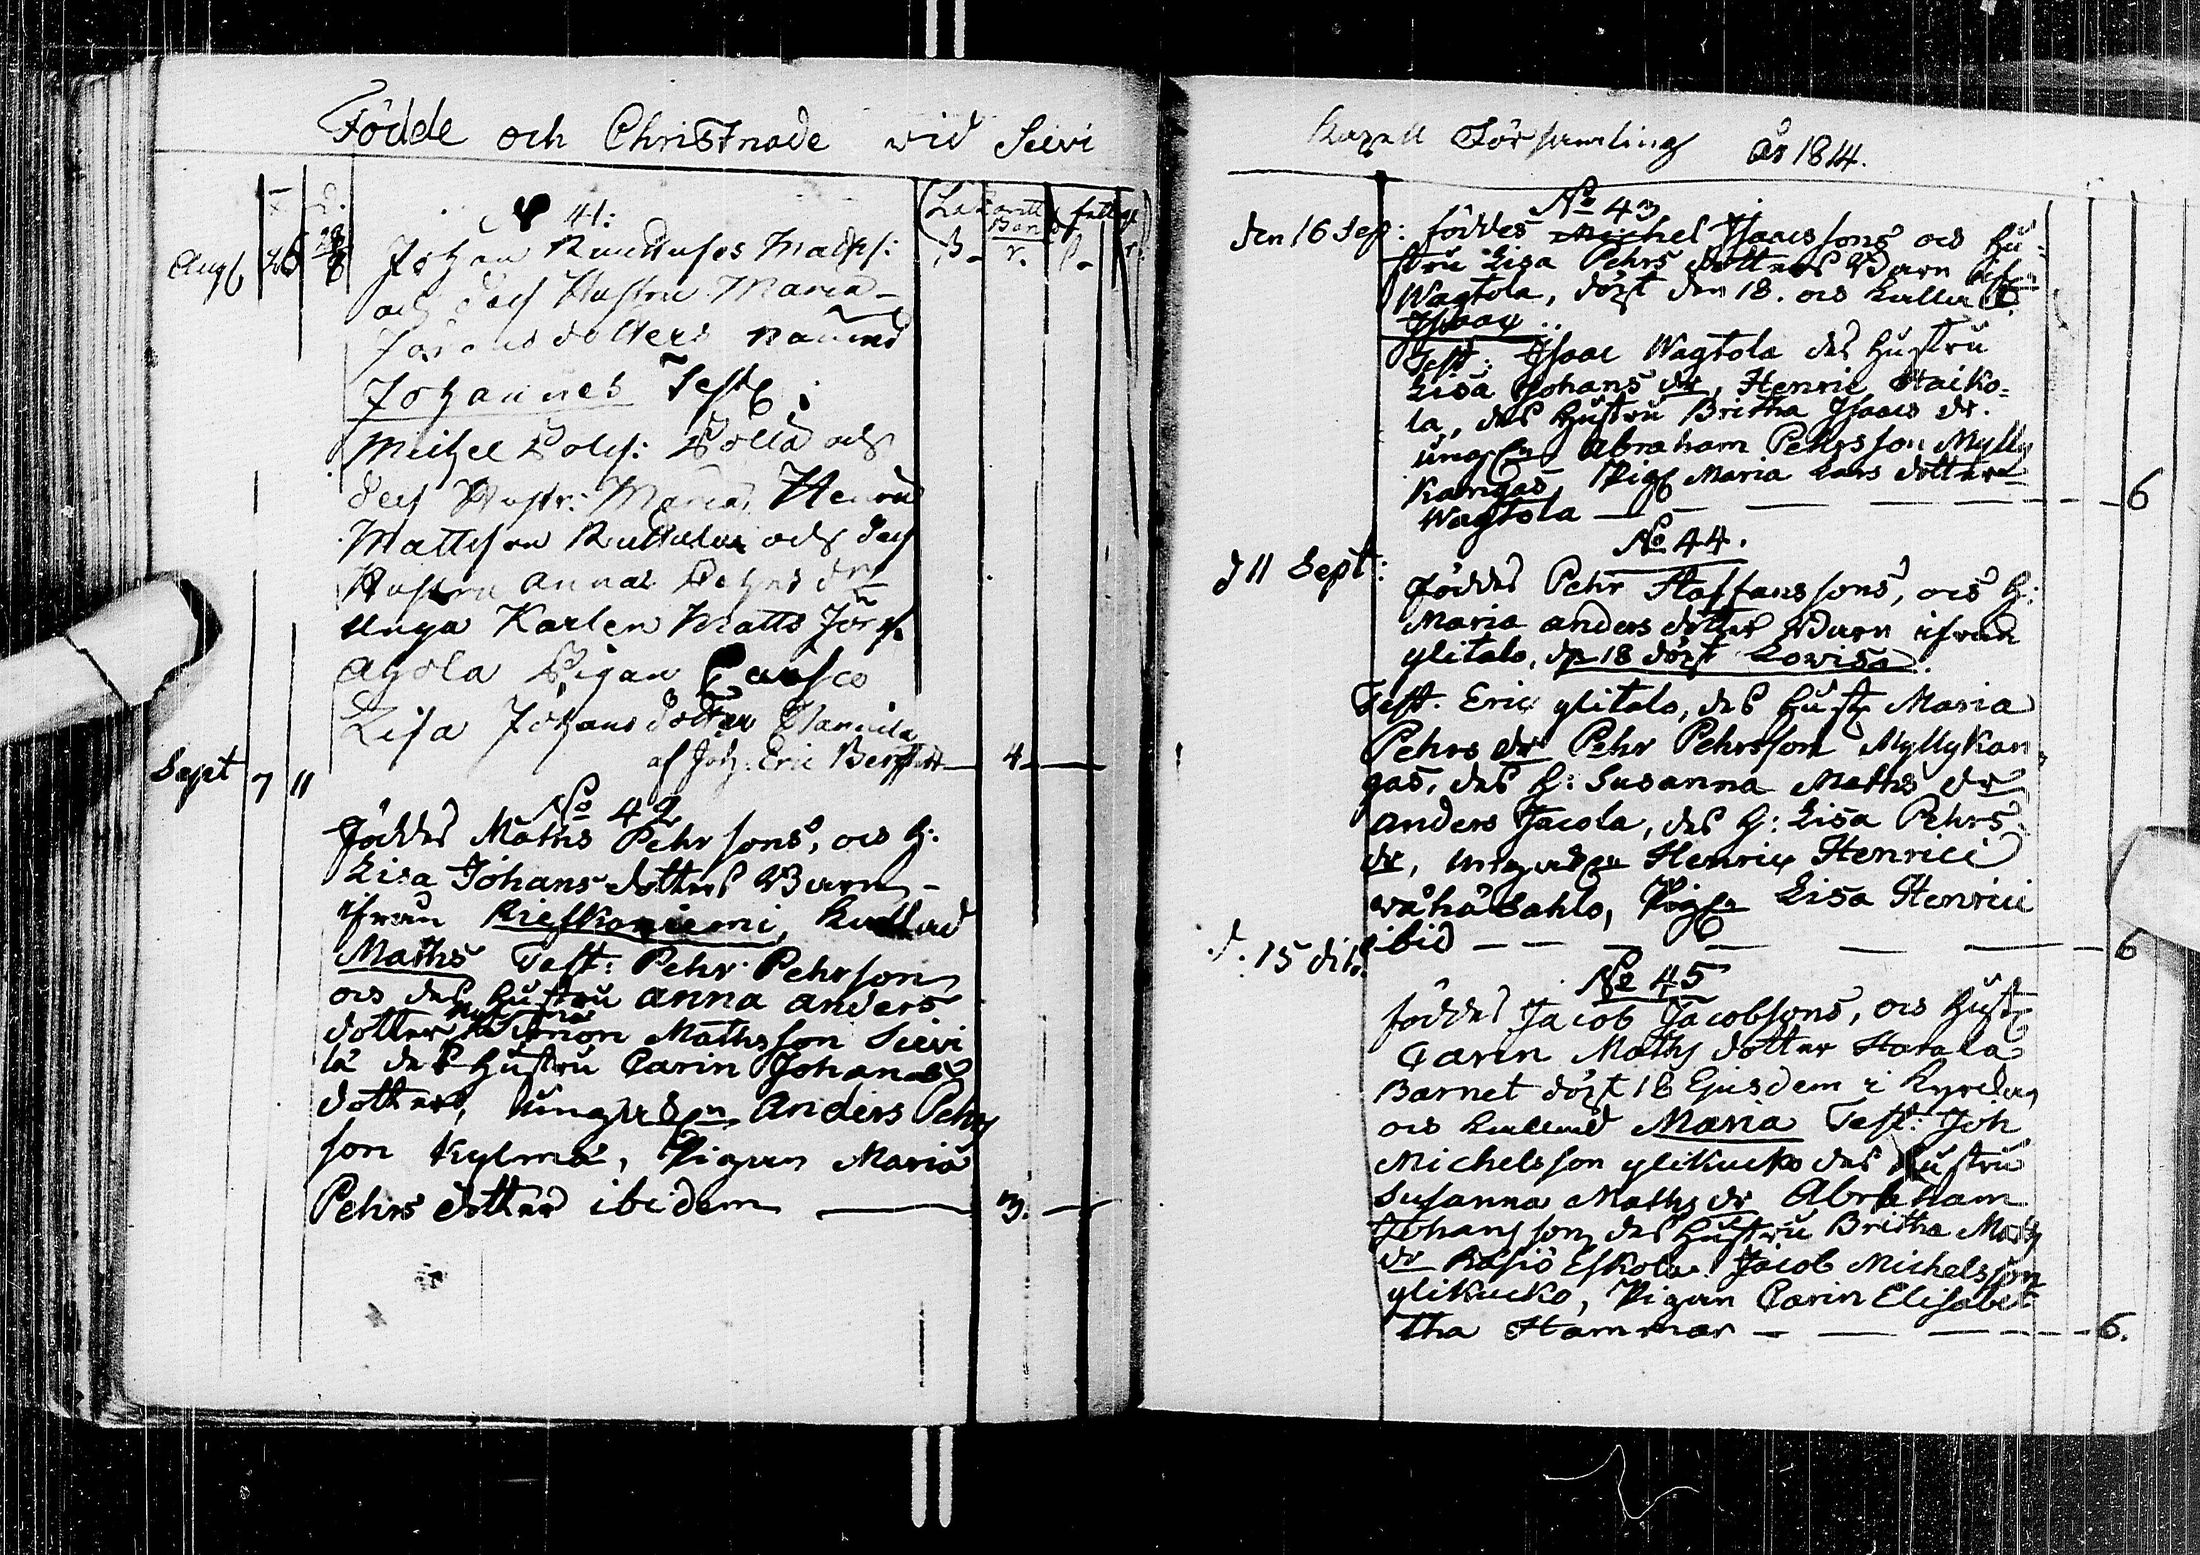 Födde och Christnade wid Sievi
f d.
(Lazarett Barn fattige)
ß. r. ß. r.
N 41:
Aug 26 28
Johan Ruuttulas Matss:
och des Hustru Maria
Jörans dotters namnd
Johannes Test:
Michel Pols: Polla och
des Hustr: Maria, Henric
Mattsson Ruttula och des
Hustru Anna Pehrs dr
Unga Karlen Matts Jörs.
Ahola Pigan
Lisa Johans dotter
af Joh. Eric Bergstet — 4 —
Sept 7 11
No 42
föddes Maths Pehrsons, ocs h:
Lisa Johans dotters Barn
ifrån Rieskaniemi, Kallad
Maths Test: Pehr Pehrson
ocs des hustru Anna Anders
dotter Simon Mathsson Sievi
lä des hustru Carin Johans
dotter, ungdrgn Anders Pehrs
son Kylmä, Pigan Maria
Pehrs dotter ibidem — 3. —
Kapell Församling år 1814.
No 43
den 16 Sep: föddes Michel Isaacssons ocs hu-
stru Lisa Pehrs dotters Barn ifr
Wagtola, döpt den 18. ocs kallat
Isaac
Test: Isaac Wagtola des hustru
Lisa Johans dr, Henric Haiko-
la, des hustru Britha Isaacs dr.
ung Abraham Pehrsson Mylly
kangas, Pig Maria Lars dotter
Wagtola — — — 6
No 44.
d 11 Sept: föddes Pehr Staffanssons, ocs h:
Maria Anders dotter Barn ifrån
ylitalo, d 18 döpt Lowisa.
Test. Eric ylitalo, des hust Maria
Pehrs dr Pehr Pehrsson Myllykan-
gas, des h: Susanna Maths dr
Anders Jacola, des h: Lisa Pehrs
dr, ungdrgn Henric Henrici
wähäsahlo, Pign Lisa Henrici
ibid — — — 6
d. 15 dito
No 45
föddes Jacob Jacobsons, ocs hust
Carin Maths dotter Harala
Barnet döpt 18 Ejusdem i Kyrckan
ocs kallad Maria Test: Joh
Michelsson ylikucko des hustru
Susanna Maths dr Abraham
Johansson des hustru Britha Maths
dr Rasio Eskola. Jacob Michelsson
ylikucko, Pigan Carin Elisabet
tha Hammar — — — 6.